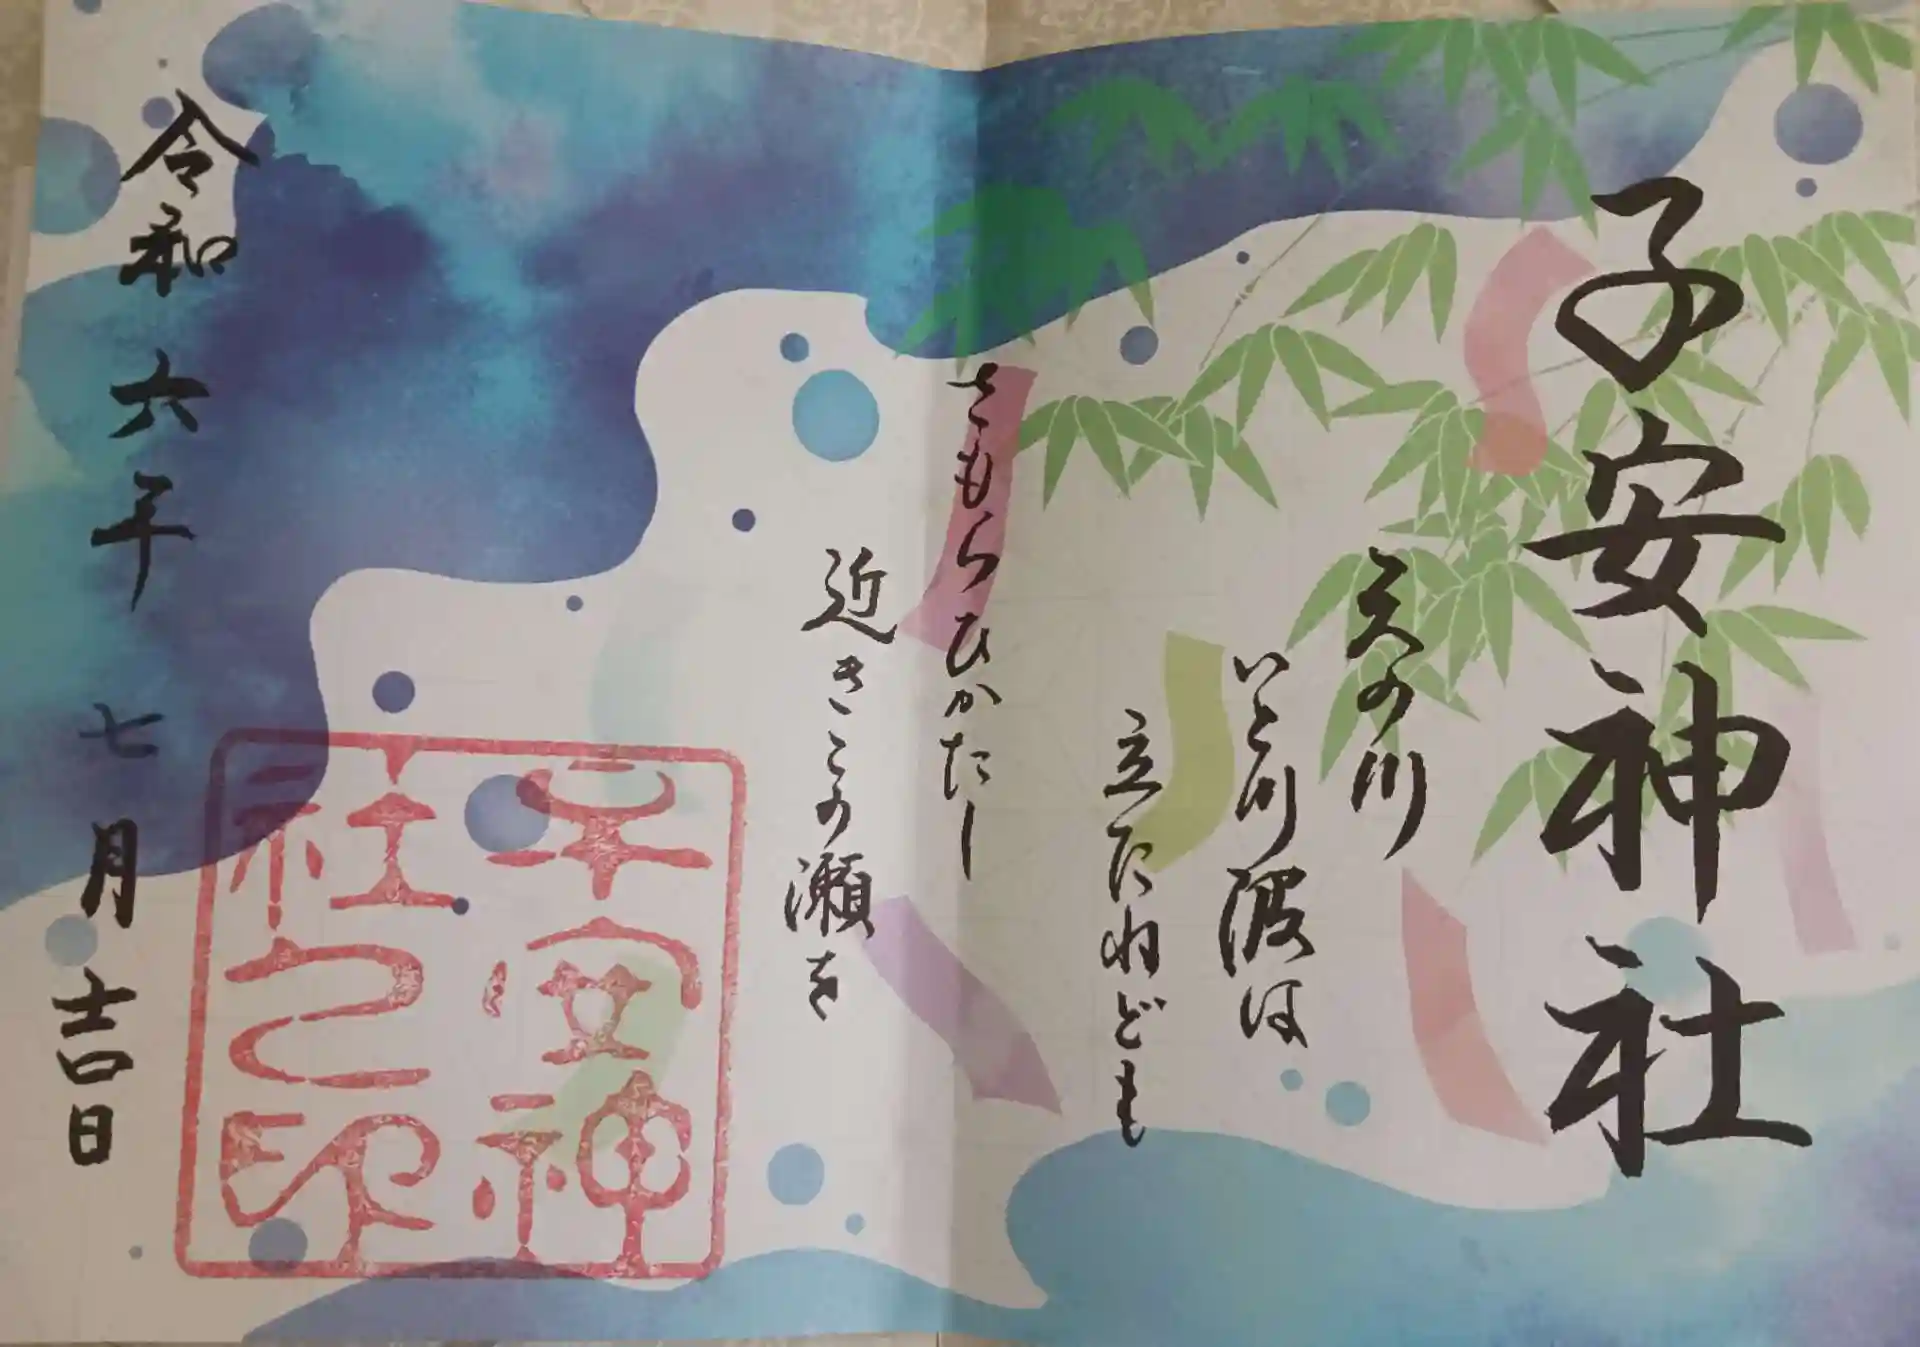 子安神社
天の川
いと川波は
立たねども
さもらひかたし
近きこの瀬を
子安神
社之印
令和六年七月吉日